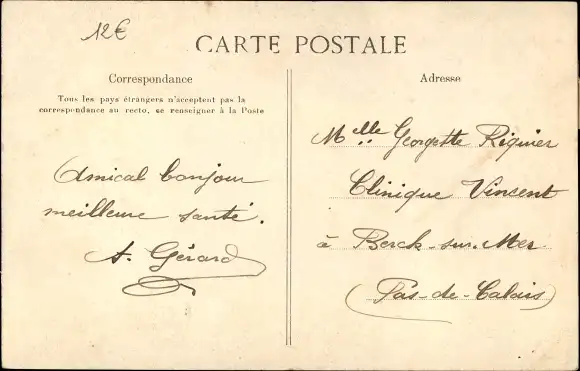 12€
CARTE POSTALE
Correspondance
Tous les pays étrangers n'acceptent pas la
correspondance au recto, se renseigner à la Poste
Amical bonjour
meilleure santé.
A. Gérard
Adresse
Melle Georgette Riquier
Clinique Vincent
à Berck-sur-Mer
(Pas-de-Calais)